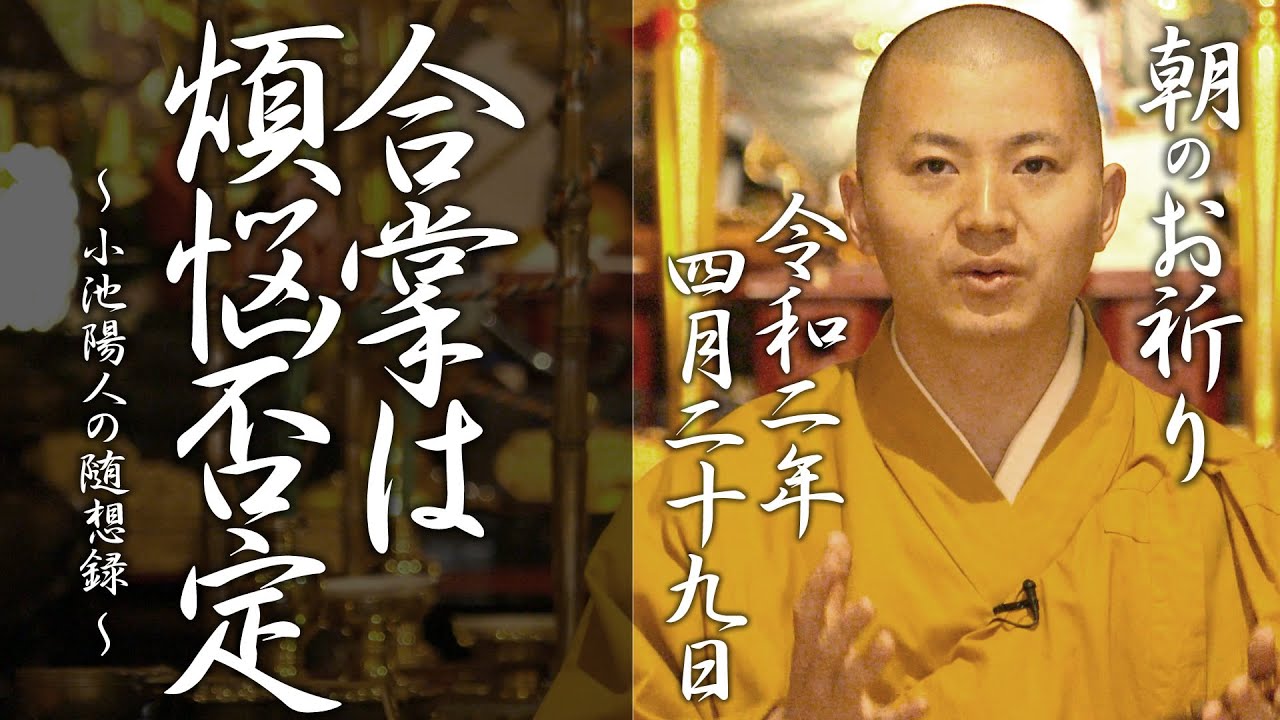 朝のお祈り
令和二年
四月二十九日
合掌は
煩悩否定
～小池陽人の随想録～